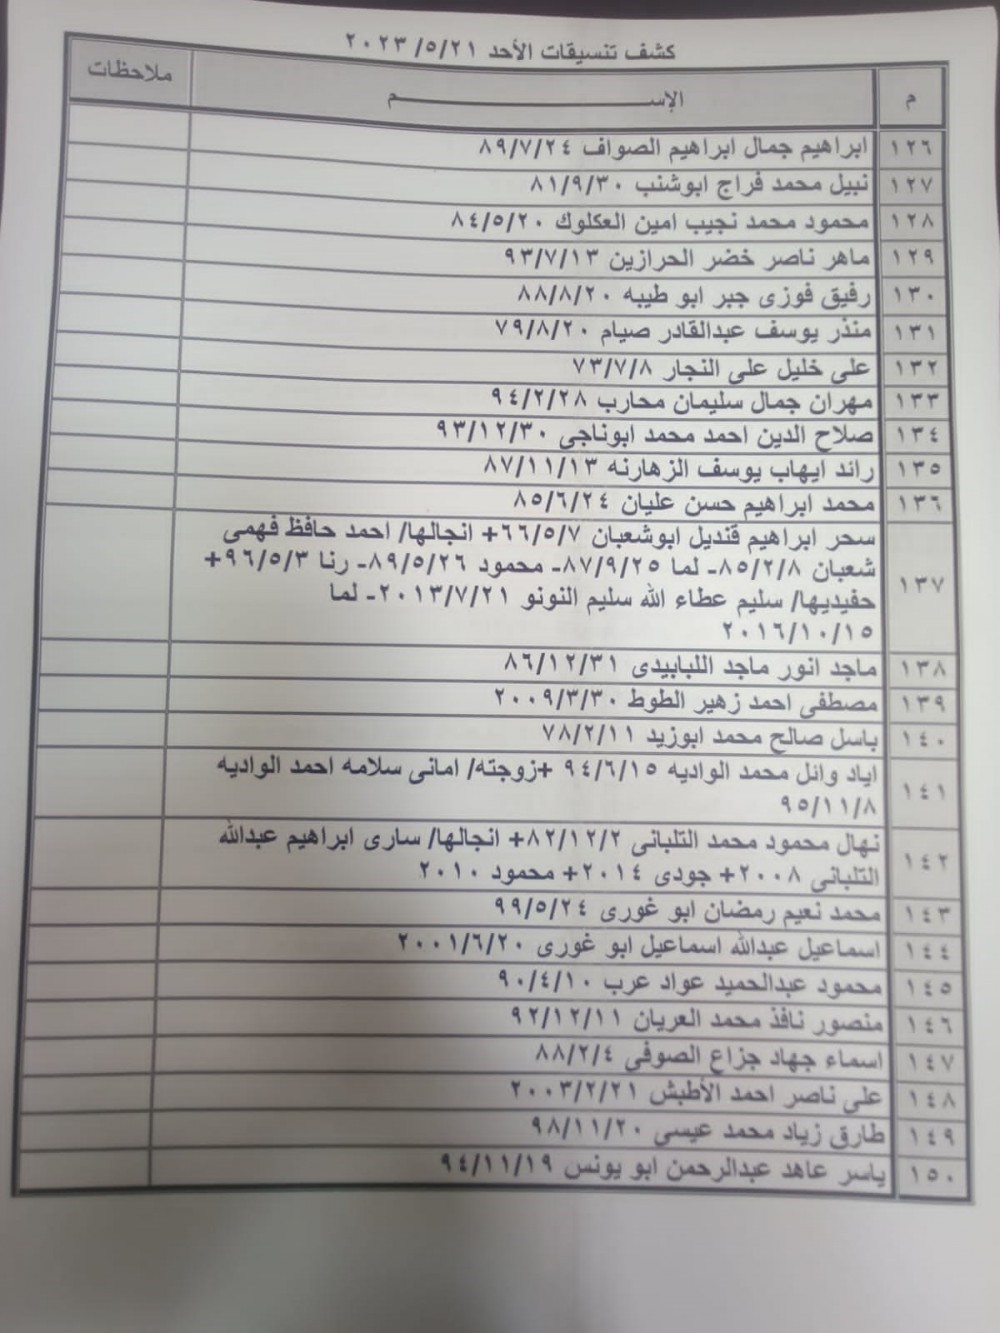 كشف تنسيقات الأحد ٢٠٢٣/٥/٢١
م الإســـــم ملاحظات
١٢٦ ابراهيم جمال ابراهيم الصواف ٨٩/٧/٢٤
١٢٧ نبيل محمد فراج ابوشنب ٨١/٩/٣٠
١٢٨ محمود محمد نجيب امين العكلوك ٨٤/٥/٢٠
١٢٩ ماهر ناصر خضر الحرازين ٩٣/٧/١٣
١٣٠ رفيق فوزى جبر ابو طيبه ٨٨/٨/٢٠
١٣١ منذر يوسف عبدالقادر صيام ٧٩/٨/٢٠
١٣٢ على خليل على النجار ٧٣/٧/٨
١٣٣ مهران جمال سليمان محارب ٩٤/٢/٢٨
١٣٤ صلاح الدين احمد محمد ابوناجى ٩٣/١٢/٣٠
١٣٥ رائد ايهاب يوسف الزهارنه ٨٧/١١/١٣
١٣٦ محمد ابراهيم حسن عليان ٨٥/٦/٢٤
١٣٧ سحر ابراهيم قنديل ابوشعبان ٦٦/٥/٧+ انجالها/ احمد حافظ فهمى
شعبان ٨٥/٢/٨- لما ٨٧/٩/٢٥- محمود ٨٩/٥/٢٦- رنا ٩٦/٥/٣+
حفيديها/ سليم عطاء الله سليم النونو ٢٠١٣/٧/٢١- لما
٢٠١٦/١٠/١٥
١٣٨ ماجد انور ماجد اللبابيدى ٨٦/١٢/٣١
١٣٩ مصطفى احمد زهير الطوط ٢٠٠٩/٣/٣٠
١٤٠ باسل صالح محمد ابوزيد ٧٨/٢/١١
١٤١ اياد وائل محمد الواديه ٩٤/٦/١٥ +زوجته/ امانى سلامه احمد الواديه
٩٥/١١/٨
١٤٢ نهال محمود محمد التلبانى ٨٢/١٢/٢+ انجالها/ سارى ابراهيم عبدالله
التلبانى ٢٠٠٨+ جودى ٢٠١٤+ محمود ٢٠١٠
١٤٣ محمد نعيم رمضان ابو غورى ٩٩/٥/٢٤
١٤٤ اسماعيل عبدالله اسماعيل ابو غورى ٢٠٠١/٦/٢٠
١٤٥ محمود عبدالحميد عواد عرب ٩٠/٤/١٠
١٤٦ منصور نافذ محمد العريان ٩٢/١٢/١١
١٤٧ اسماء جهاد جزاع الصوفى ٨٨/٢/٤
١٤٨ على ناصر احمد الأطبش ٢٠٠٣/٢/٢١
١٤٩ طارق زياد محمد عيسى ٩٨/١١/٢٠
١٥٠ ياسر عاهد عبدالرحمن ابو يونس ٩٤/١١/١٩